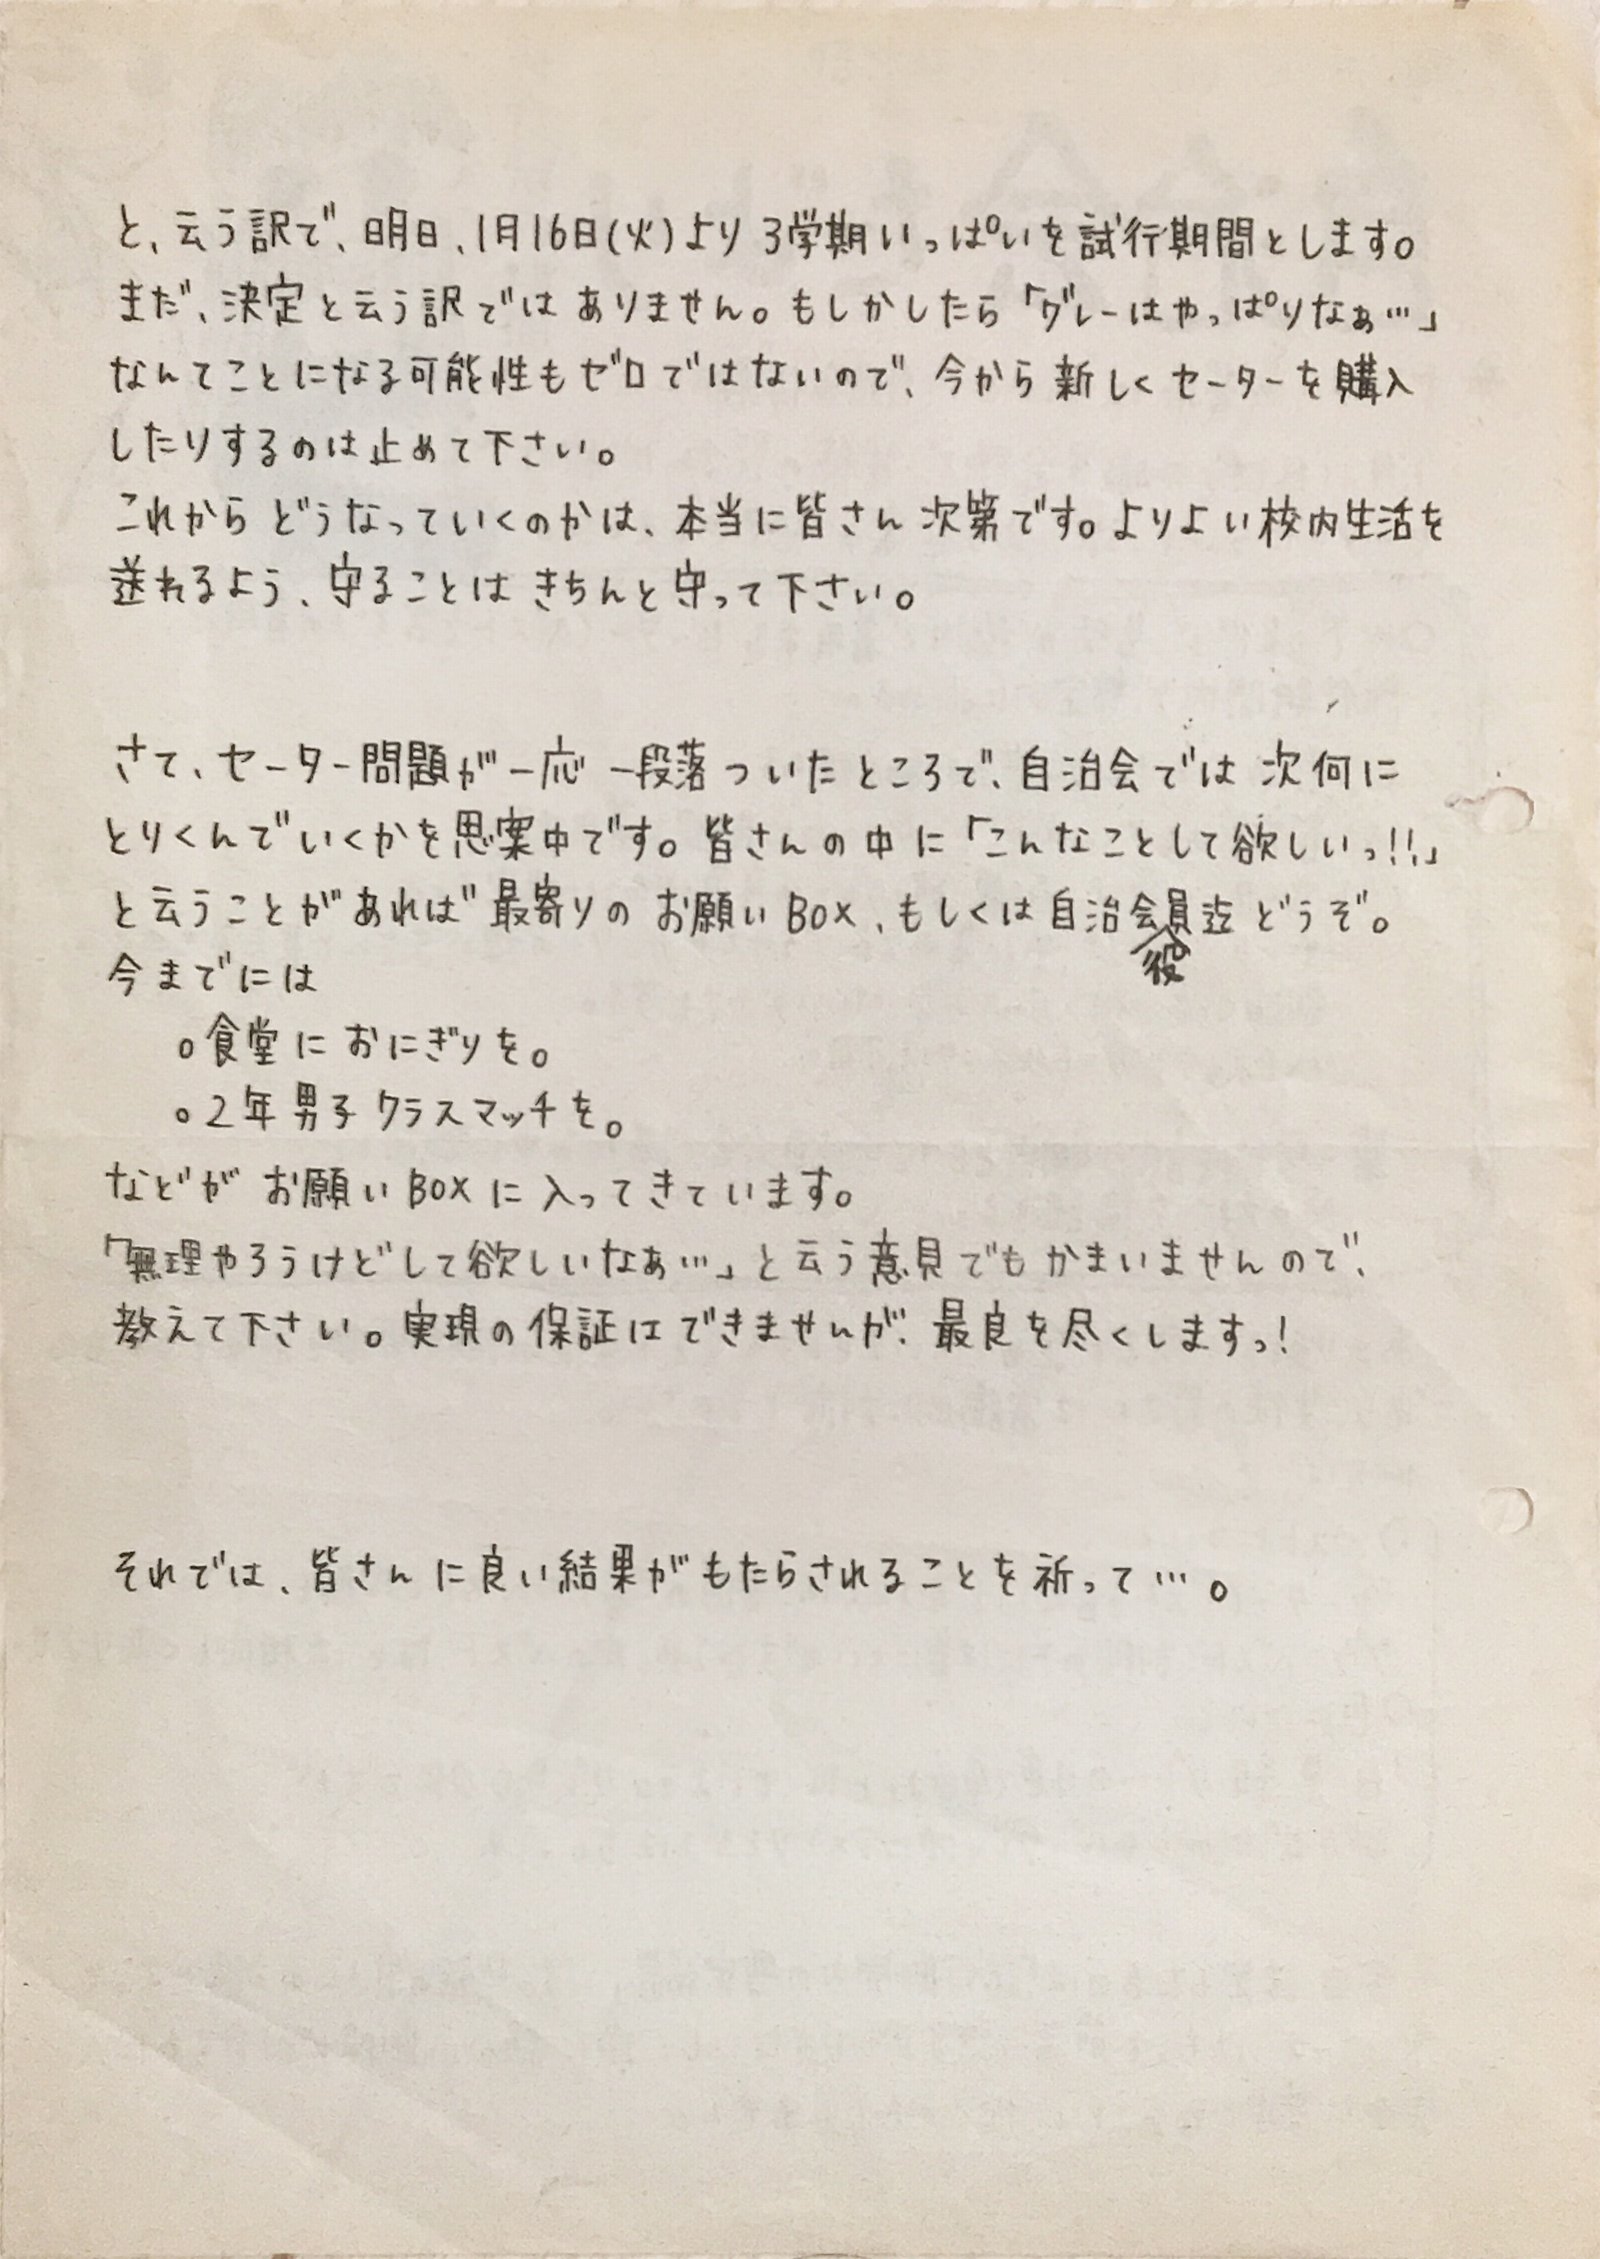 と、云う訳で、明日、1月16日(火)より3学期いっぱいを試行期間とします。
まだ、決定と云う訳ではありません。もしかしたら「グレーはやっぱりなぁ…」
なんてことになる可能性もゼロではないので、今から新しくセーターを購入
したりするのは止めて下さい。
これからどうなっていくのかは、本当に皆さん次第です。よりよい校内生活を
送れるよう、守ることはきちんと守って下さい。
さて、セーター問題が一応一段落ついたところで、自治会では次何に
とりくんでいくかを思案中です。皆さんの中に「こんなことして欲しいっ!!」
と云うことがあれば最寄りのお願いBOX、もしくは自治会役員迄どうぞ。
今までには
○食堂におにぎりを。
○2年男子クラスマッチを。
などがお願いBOXに入ってきています。
「無理やろうけどして欲しいなぁ…」と云う意見でもかまいませんので、
教えて下さい。実現の保証はできませんが、最良を尽くしますっ!
それでは、皆さんに良い結果がもたらされることを祈って…。